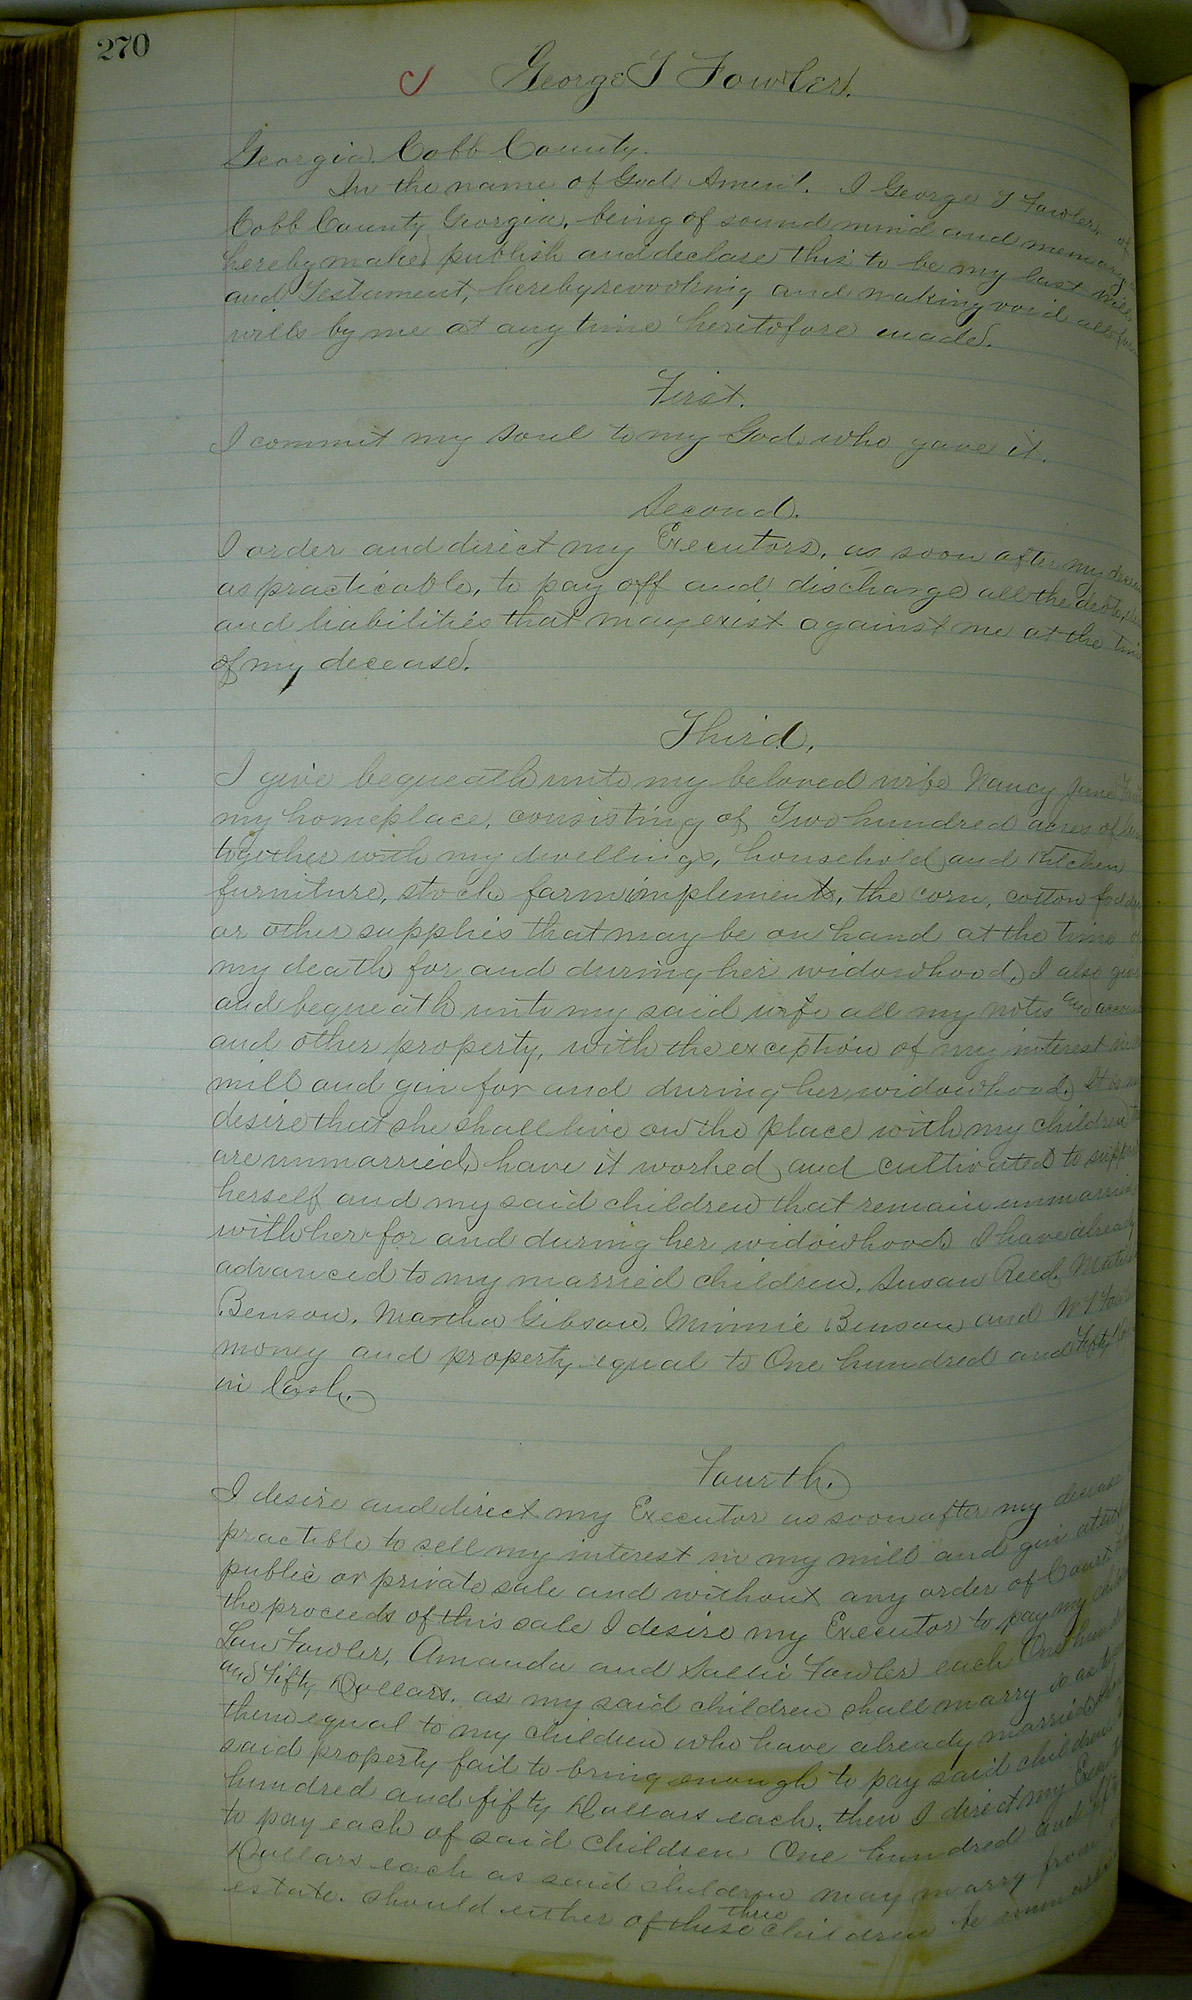 270
George T Fowler.
Georgia Cobb County.
In the name of God Amen. I George T Fowler, of
Cobb County Georgia, being of sound mind and memory
hereby make, publish and declare this to be my last will
and Testament, hereby revooking and making void all
wills by me at any time heretofore made.
First.
I commit my soul to my God who gave it.
Second.
I order and direct my Executors, as soon after my
as practicable, to pay off and discharge all the debts
and liabilities that may exist against me at the time
of my decease.
Third.
I give bequeath unto my beloved wife Nancy Jane
my homeplace, consisting of Two hundred acres of
together with my dwellings, household and Kitchen
furniture, stock farm implements, the corn, cotton
or other supplies that may be on hand at the time of
my death for and during her widowhood, I also give
and bequeath unto my said wife all my notes and
and other property, with the exception of my interest in
mill and gin for and during her widowhood. It is my
desire that she shall live on the place with my children
are unmarried, have it worked and cultivated to support
herself and my said children that remain unmarried
with her for and during her widowhood I have already
advanced to my married children, Susan Reed,
Benson, Martha Gibson, Minnie Benson and
money and property equal to One hundred and Fifty
in Cash.
Fourth.
I desire and direct my Executor as soon after my decease
practible to sell my interest in my mill and gin
public or private sale and without any order of Court
the proceeds of this sale I desire my Executor to pay my
Lou Fowler, Amanda and Sallie Fowler each One
and Fifty Dollars, as my said children shall marry so as to
them equal to my children who have already married
said property fail to bring enough to pay said children
hundred and fifty Dollars each, then I direct my
to pay each of said children One hundred and
Dollars each as said children may marry from
estate. Should either of these three children be